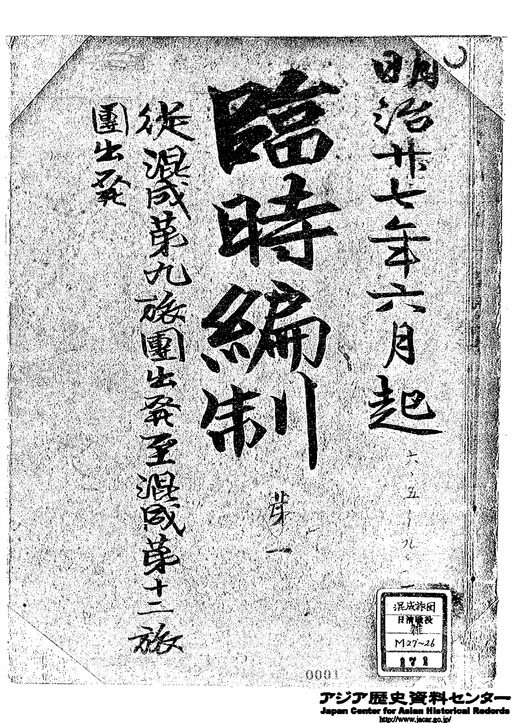 明治廿七年六月起
六、五〜九、一
臨時編制
第一
従混成第九旅團出発至混成第十二旅
團出発
混成旅団
日清戦役
雑
M27~26
171
0001
アジア歴史資料センター
Japan Center for Asian Historical Records
http://www.jacar.go.jp/